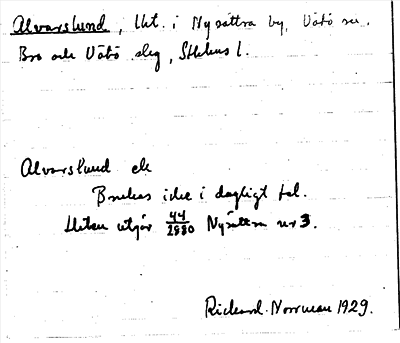 Alvarslund, lht. i Nysättra by, Vätö sn.
Bro och Vätö slg, Sthlms l.
Alvarslund ek
Brukas icke i dagligt tal.
Utgör 44/2880 Nysättra nr 3.
Rickard Norrman 1929.